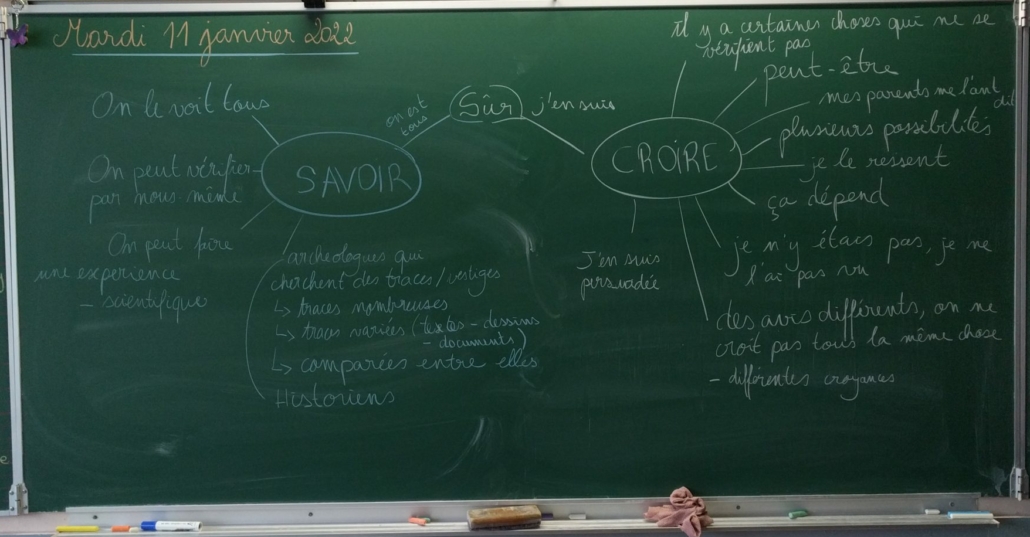 Mardi 11 janvier 2022
On le voit tous
On peut vérifier
par nous-même
On peut faire
une expérience
- scientifique
SAVOIR
archeologues qui
cherchent des traces/vestiges
↳ traces nombreuses
↳ traces variées (textes - dessins
- documents)
↳ comparées entre elles
Historiens
on est
tous
Sûr
j'en suis
CROIRE
il y a certaines choses qui ne se
vérifient pas
peut-être
mes parents me l'ont
dit
plusieurs possibilités
je le ressent
ça dépend
je n'y étais pas, je ne
l'ai pas vu
J'en suis
persuadée
des avis différents, on ne
croit pas tous la même chose
- différentes croyances